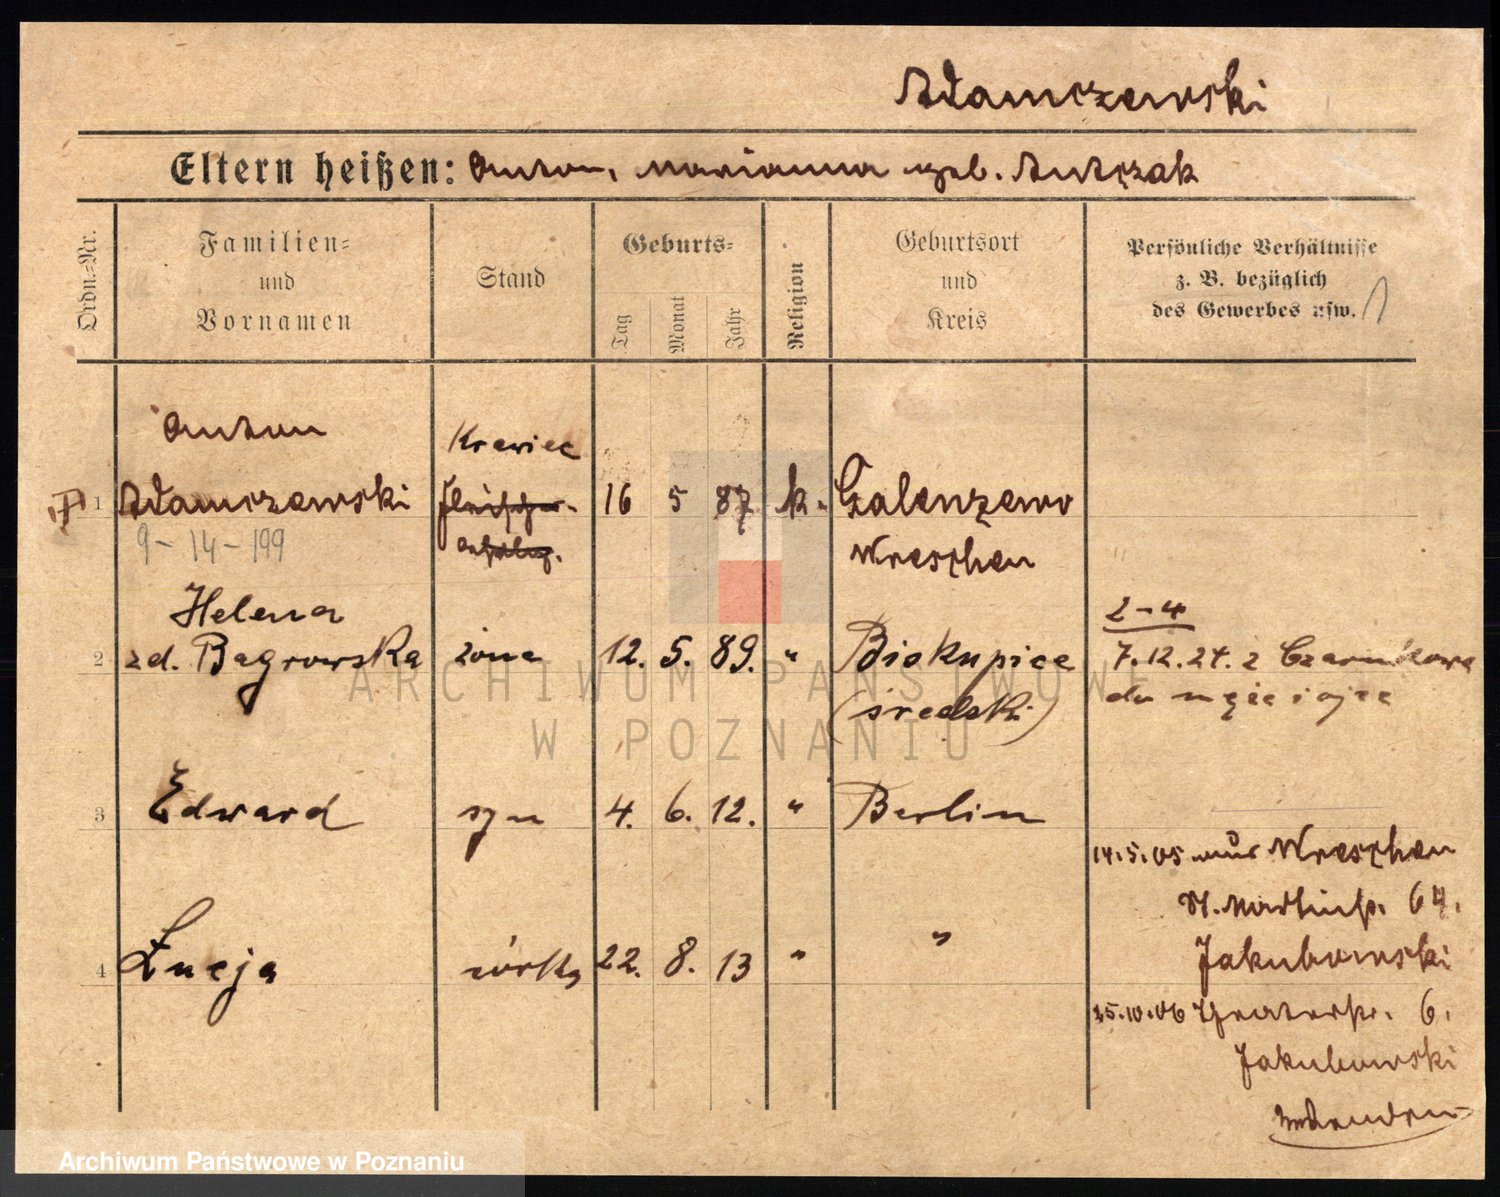 Adamczewski
Eltern heißen: Anton, Marianna geb. Antczak
Ordn.=Nr.
Familien=
und
Vornamen
Stand
Geburts=
Tag
Monat
Jahr
Religion
Geburtsort
und
Kreis
Persönliche Verhältnisse
z. B. bezüglich
des Gewerbes usw.
Anton
Krawiec
1 Adamczewski Fleischer- 16 5 87 k. Galenzewo
9-14-199 Wreschen
Helena
2 zd. Bagrowska żona 12. 5. 89. " Biskupice
(średzki)
2-4
7.12.24. z Czarnkowa
do męża i ojca
3 Edward syn 4. 6. 12. " Berlin
4 Łucja córka 22. 8. 13 " "
14.5.05 aus Wreschen
St. Martinstr. 64.
Jakubowski
25.10.06 Theaterstr. 6.
Jakubowski
ARCHIWUM PAŃSTWOWE
W POZNANIU
Archiwum Państwowe w Poznaniu